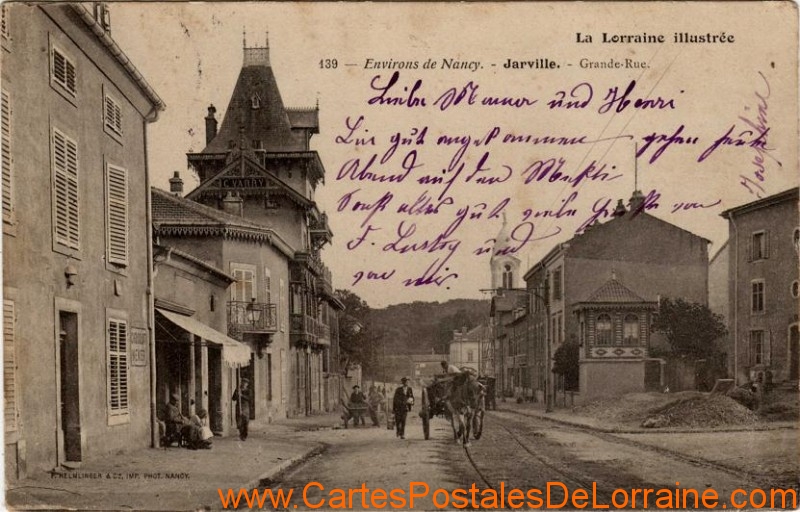 La Lorraine illustrée
139 — Environs de Nancy. - Jarville. - Grande-Rue.
Liebe Mamer und Henri
gut angekommen gehen
Abend auf den
Sonst alles gut viele von
F. und
von mir.
Josephine
C. VARRY
F. HELMLINGER & Cie, IMP. PHOT. NANCY.
www.CartesPostalesDeLorraine.com